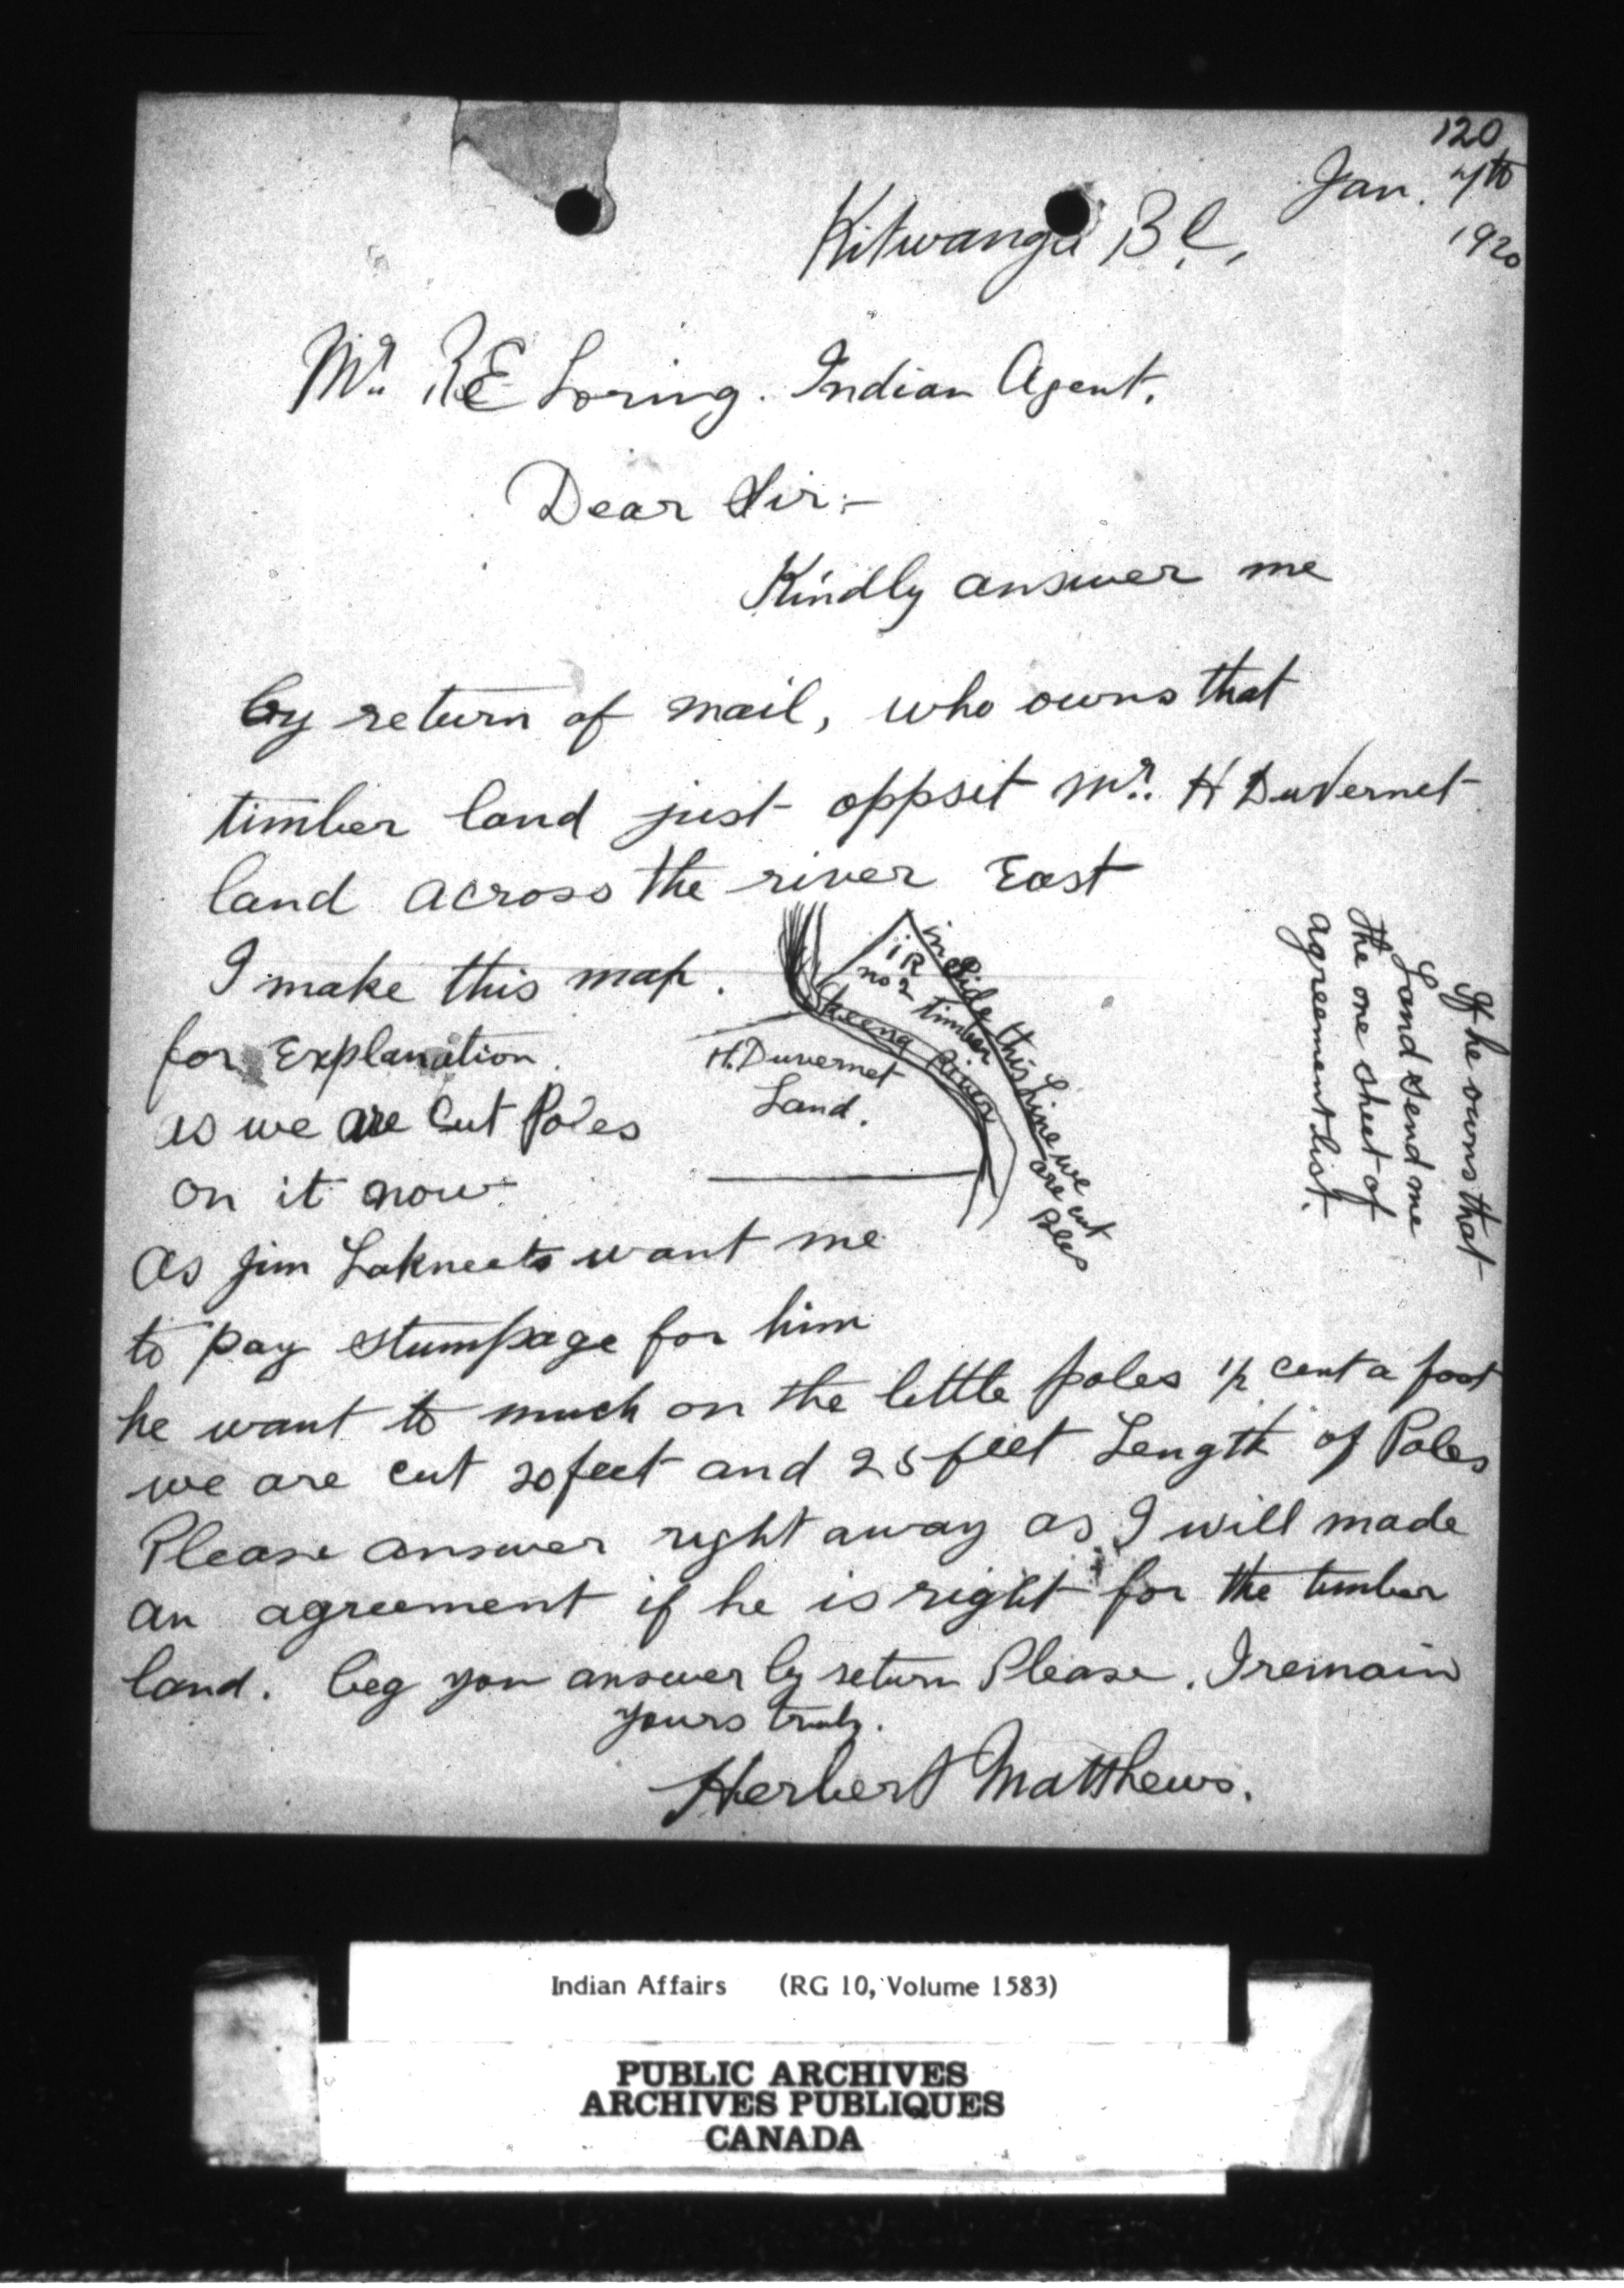 120
Jan. 7th
Kitwanga B.C.,
1920
Mr. R E Loring. Indian Agent.
Dear Sir:-
Kindly answer me
by return of mail, who owns that
timber land just oppsit Mr. H DuVernet
land across the river East
I make this map.
for Explanation.
as we are Cut Poles
on it now.
iR
no 2 timber
inside this Line we
are cut
Poles
Skeena River
H. Duvernet
Land.
If he owns that
Land send me
the one sheet of
agreement list.
As Jim Lakneets want me
to pay stumpage for him
he want to much on the little poles 1/2 cent a foot
we are cut 20 feet and 25 feet Length of Poles
Please answer right away as I will made
an agreement if he is right for the timber
land. beg you answer by return Please. I remain
yours truly.
Herbert Matthews.
Indian Affairs (RG 10, Volume 1583)
PUBLIC ARCHIVES
ARCHIVES PUBLIQUES
CANADA